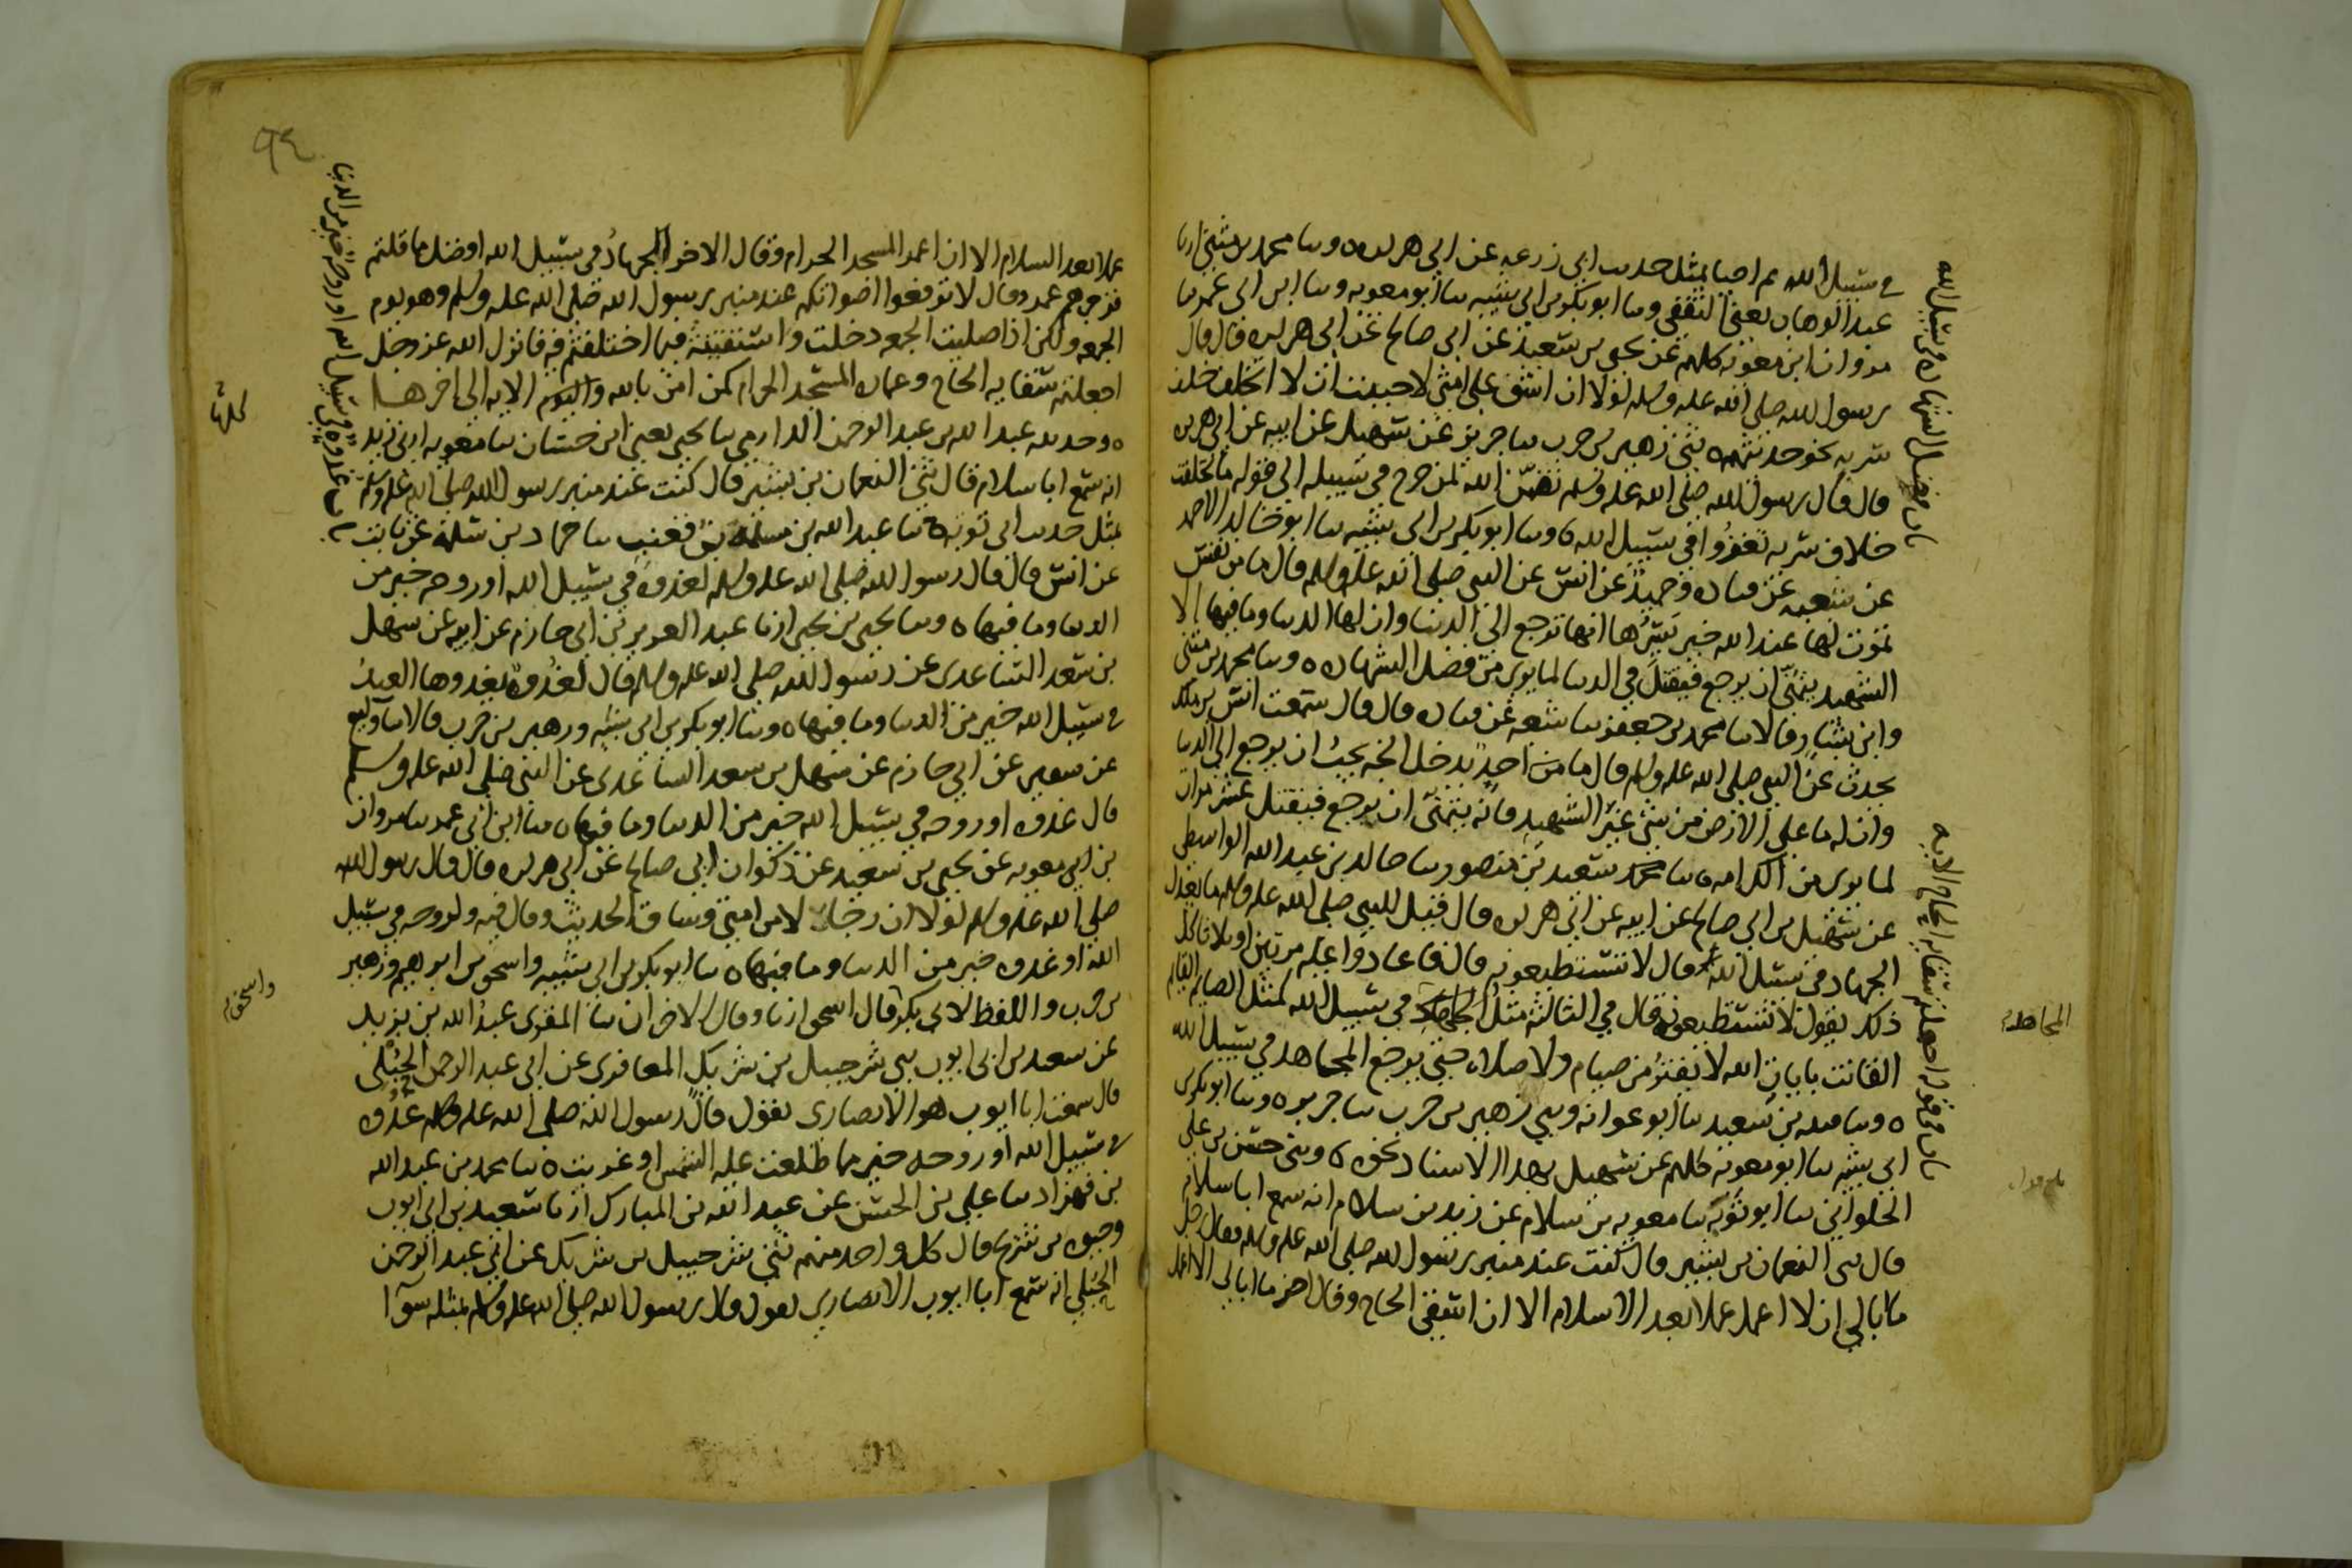 في سبيل الله ثم احيا بمثل حديث ابي زرعه عن ابي هريره ه وسا محمد بن مثنى ارنا
عبد الوهاب يعني الثقفي وسا ابو بكر بن ابي شيبه سا ابو معويه وسا ابن ابي عمر سا
مروان ابن معويه كلهم عن يحيى بن سعيد عن ابي صالح عن ابي هريره قال قال
رسول الله صلى الله عليه وسلم لولا ان اشق على امتي لاحببت ان لا اتخلف خلف
سريه نحو حديثهم ه ثني زهير بن حرب سا جرير عن سهيل عن ابيه عن ابي هريره
قال قال رسول الله صلى الله عليه وسلم تضمن الله لمن خرج في سبيله الى قوله ما تخلفت
خلاف سريه تغزوا في سبيل الله ه وسا ابو بكر بن ابي شيبه سا ابو خالد الاحمر
عن شعبه عن قتاده وحميد عن انس عن النبي صلى الله عليه وسلم قال ما من نفس
تموت لها عند الله خير يسرها انها ترجع الى الدنيا وان لها الدنيا وما فيها الا
الشهيد يتمنى ان يرجع فيقتل في الدنيا لما يرى من فضل الشهاده ه وسا محمد بن مثنى
وابن بشار قالا سا محمد بن جعفر سا شعبه عن قتاده قال قال سمعت انس بن ملك
يحدث عن النبي صلى الله عليه وسلم قال ما من احد يدخل الجنه يحب ان يرجع الى الدنيا
وان له ما على الارض من شئ غير الشهيد فانه يتمنى ان يرجع فيقتل عشر مرات
لما يرى من الكرامه ه سا سعيد بن منصور سا خالد بن عبد الله الواسطي
عن سهيل بن ابي صالح عن ابيه عن ابي هريره قال قيل للنبي صلى الله عليه وسلم ما يعدل
الجهاد في سبيل الله قال لا تستطيعونه قال فاعادوا عليه مرتين او ثلاثا كل
ذلك يقول لا تستطيعونه قال في الثالثه مثل المجاهد في سبيل الله كمثل الصايم القايم
القانت بايات الله لا يفتر من صيام ولا صلاه حتى يرجع المجاهد في سبيل الله
ه وسا قتيبه بن سعيد سا ابو عوانه وثني زهير بن حرب سا جرير ه وسا ابو بكر بن
ابي شيبه سا ابو معويه كلهم عن سهيل بهذا الاسناد نحوه ه وثني حسن بن علي
الحلواني سا ابو توبه سا معويه بن سلام عن زيد بن سلام انه سمع ابا سلام
قال ثني النعمان بن بشير قال كنت عند منبر رسول الله صلى الله عليه وسلم فقال رجل
ما ابالي ان لا اعمل عملا بعد الاسلام الا ان اسقي الحاج وقال اخر ما ابالي الا اعمل
باب فضل الشهاده في سبيل الله
باب في قوله اجعلتم سقايه الحاج الايه
المجاهد
٩٤
عملا بعد السلام الا ان اعمر المسجد الحرام وقال الاخر الجهاد في سبيل الله افضل مما قلتم
فزجرهم عمر وقال لا ترفعوا اصواتكم عند منبر رسول الله صلى الله عليه وسلم وهو يوم
الجمعه ولكن اذا صليت الجمعه دخلت واستفتيته فيما اختلفتم فيه فانزل الله عز وجل
اجعلتم سقايه الحاج وعماره المسجد الحرام كمن امن بالله واليوم الايه الى اخرها
ه وحدثنيه عبد الله بن عبد الرحمن الدارمي سا يحيى يعني ابن حسان سا معويه اخبرني زيد
انه سمع ابا سلام قال ثني النعمان بن بشير قال كنت عند منبر رسول الله صلى الله عليه وسلم
بمثل حديث ابي توبه ه سا عبد الله بن مسلمه بن قعنب سا حماد بن سلمه عن ثابت
عن انس قال قال رسول الله صلى الله عليه وسلم لغدوه في سبيل الله او روحه خير من
الدنيا وما فيها ه وسا يحيى بن يحيى ارنا عبد العزيز بن ابي حازم عن ابيه عن سهل
بن سعد الساعدي عن رسول الله صلى الله عليه وسلم قال لغدوه يغدوها العبد
في سبيل الله خير من الدنيا وما فيها ه وسا ابو بكر بن ابي شيبه وزهير بن حرب قالا سا وكيع
عن سفين عن ابي حازم عن سهل بن سعد الساعدي عن النبي صلى الله عليه وسلم
قال غدوه او روحه في سبيل الله خير من الدنيا وما فيها ه سا ابن ابي عمر سا مروان
بن ابي معويه عن يحيى بن سعيد عن ذكوان ابي صالح عن ابي هريره قال قال رسول الله
صلى الله عليه وسلم لولا ان رجالا من امتي وساق الحديث وقال فيه ولروحه في سبيل
الله او غدوه خير من الدنيا وما فيها ه سا ابو بكر بن ابي شيبه واسحق بن ابرهيم وزهير
بن حرب واللفظ لابي بكر قال اسحق ارنا وقال الاخران سا المقرى عبد الله بن يزيد
عن سعيد بن ابي ايوب ثني شرحبيل بن شريك المعافري عن ابي عبد الرحمن الحبلي
قال سمعت ابا ايوب هو الانصاري يقول قال رسول الله صلى الله عليه وسلم غدوه
في سبيل الله او روحه خير مما طلعت عليه الشمس او غربت ه سا محمد بن عبد الله
بن قهزاد سا علي بن الحسن عن عبد الله بن المبارك ارنا سعيد بن ابي ايوب
وحيوه بن شريح قال كل واحد منهم ثني شرحبيل بن شريك عن ابي عبد الرحمن
الحبلي انه سمع ابا ايوب الانصاري يقول قال رسول الله صلى الله عليه وسلم بمثله سوا
باب غدوه في سبيل الله او روحه خير من الدنيا
كلها
واسحق